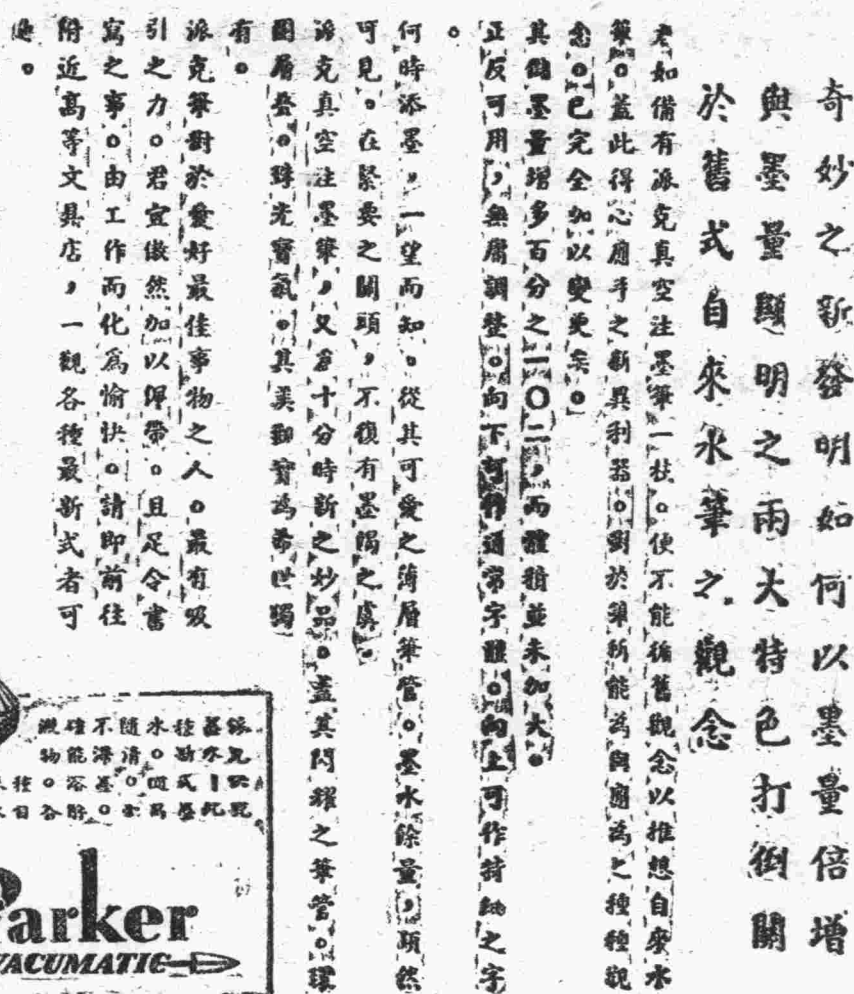 奇妙之新發明如何以墨量倍增
與墨量顯明之兩大特色打倒關
於舊式自來水筆之觀念
君如備有派克真空注墨筆一枝。便不能循舊觀念以推想自來水
筆。蓋此得心應手之新異利器。對於筆所能為與應為之種種觀
念。已完全加以變更矣。
其儲墨量增多百分之一〇二，而體積並未加大。
正反可用，無需調整。向下可作通常字體。向上可作特細之字
。
何時添墨，一望而知。從其可愛之薄層筆管。墨水餘量，顯然
可見。在緊要之關頭，不復有墨竭之虞。
派克真空注墨筆，又為十分時新之妙品。蓋其閃耀之筆管。環
圈層疊。珠光寶氣。其美麗實為希世獨
有。
派克筆對於愛好最佳事物之人。最有吸
引之力。君宜傲然加以佩帶。且足令書
寫之事。由工作而化為愉快。請即前往
附近高等文具店，一觀各種最新式者可
也。
水。
隨清。
不滯墨。
Parker
VACUMATIC